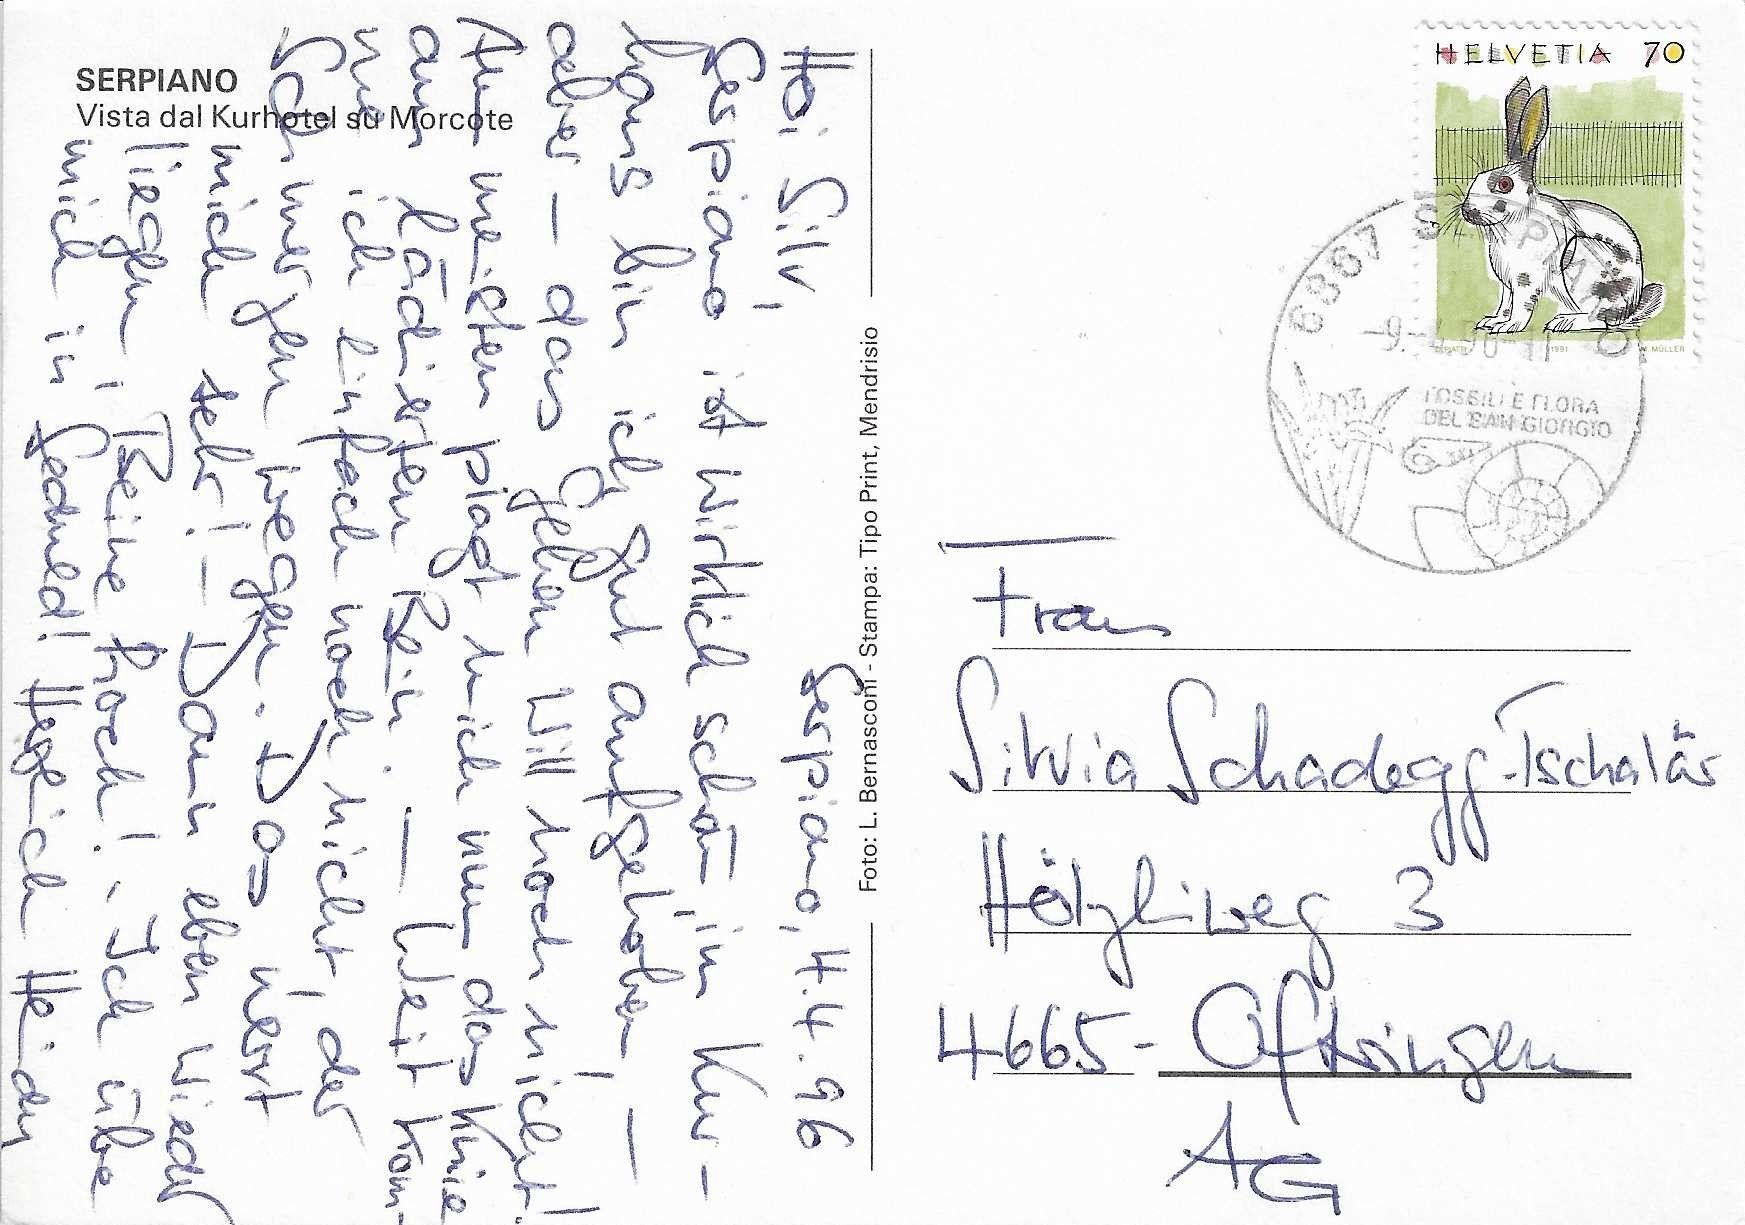 SERPIANO
Vista dal Kurhotel su Morcote
Serpiano, 4.4.96
Hoi Silv,
Serpiano ist wirklich schön, im Kur-
haus bin ich gut aufgehoben, —
aber — das Gehen will noch nicht!
Am meisten plagt mich nun das Knie
am lädierten Bein. — Weit kom-
me ich einfach noch nicht, der
Schmerzen wegen. Das nervt
mich sehr! — Dann eben wieder
liegen, Beine hoch! Ich übe
mich in Geduld! Herzlich Heidy
Foto: L. Bernasconi - Stampa: Tipo Print, Mendrisio
HELVETIA 70
1991
M. MÜLLER
6867 SERPIANO
FOSSILI E FLORA
DEL SAN GIORGIO
Frau
Silvia Schadegg-Tschalär
Hölzliweg 3
4665- Oftringen
AG